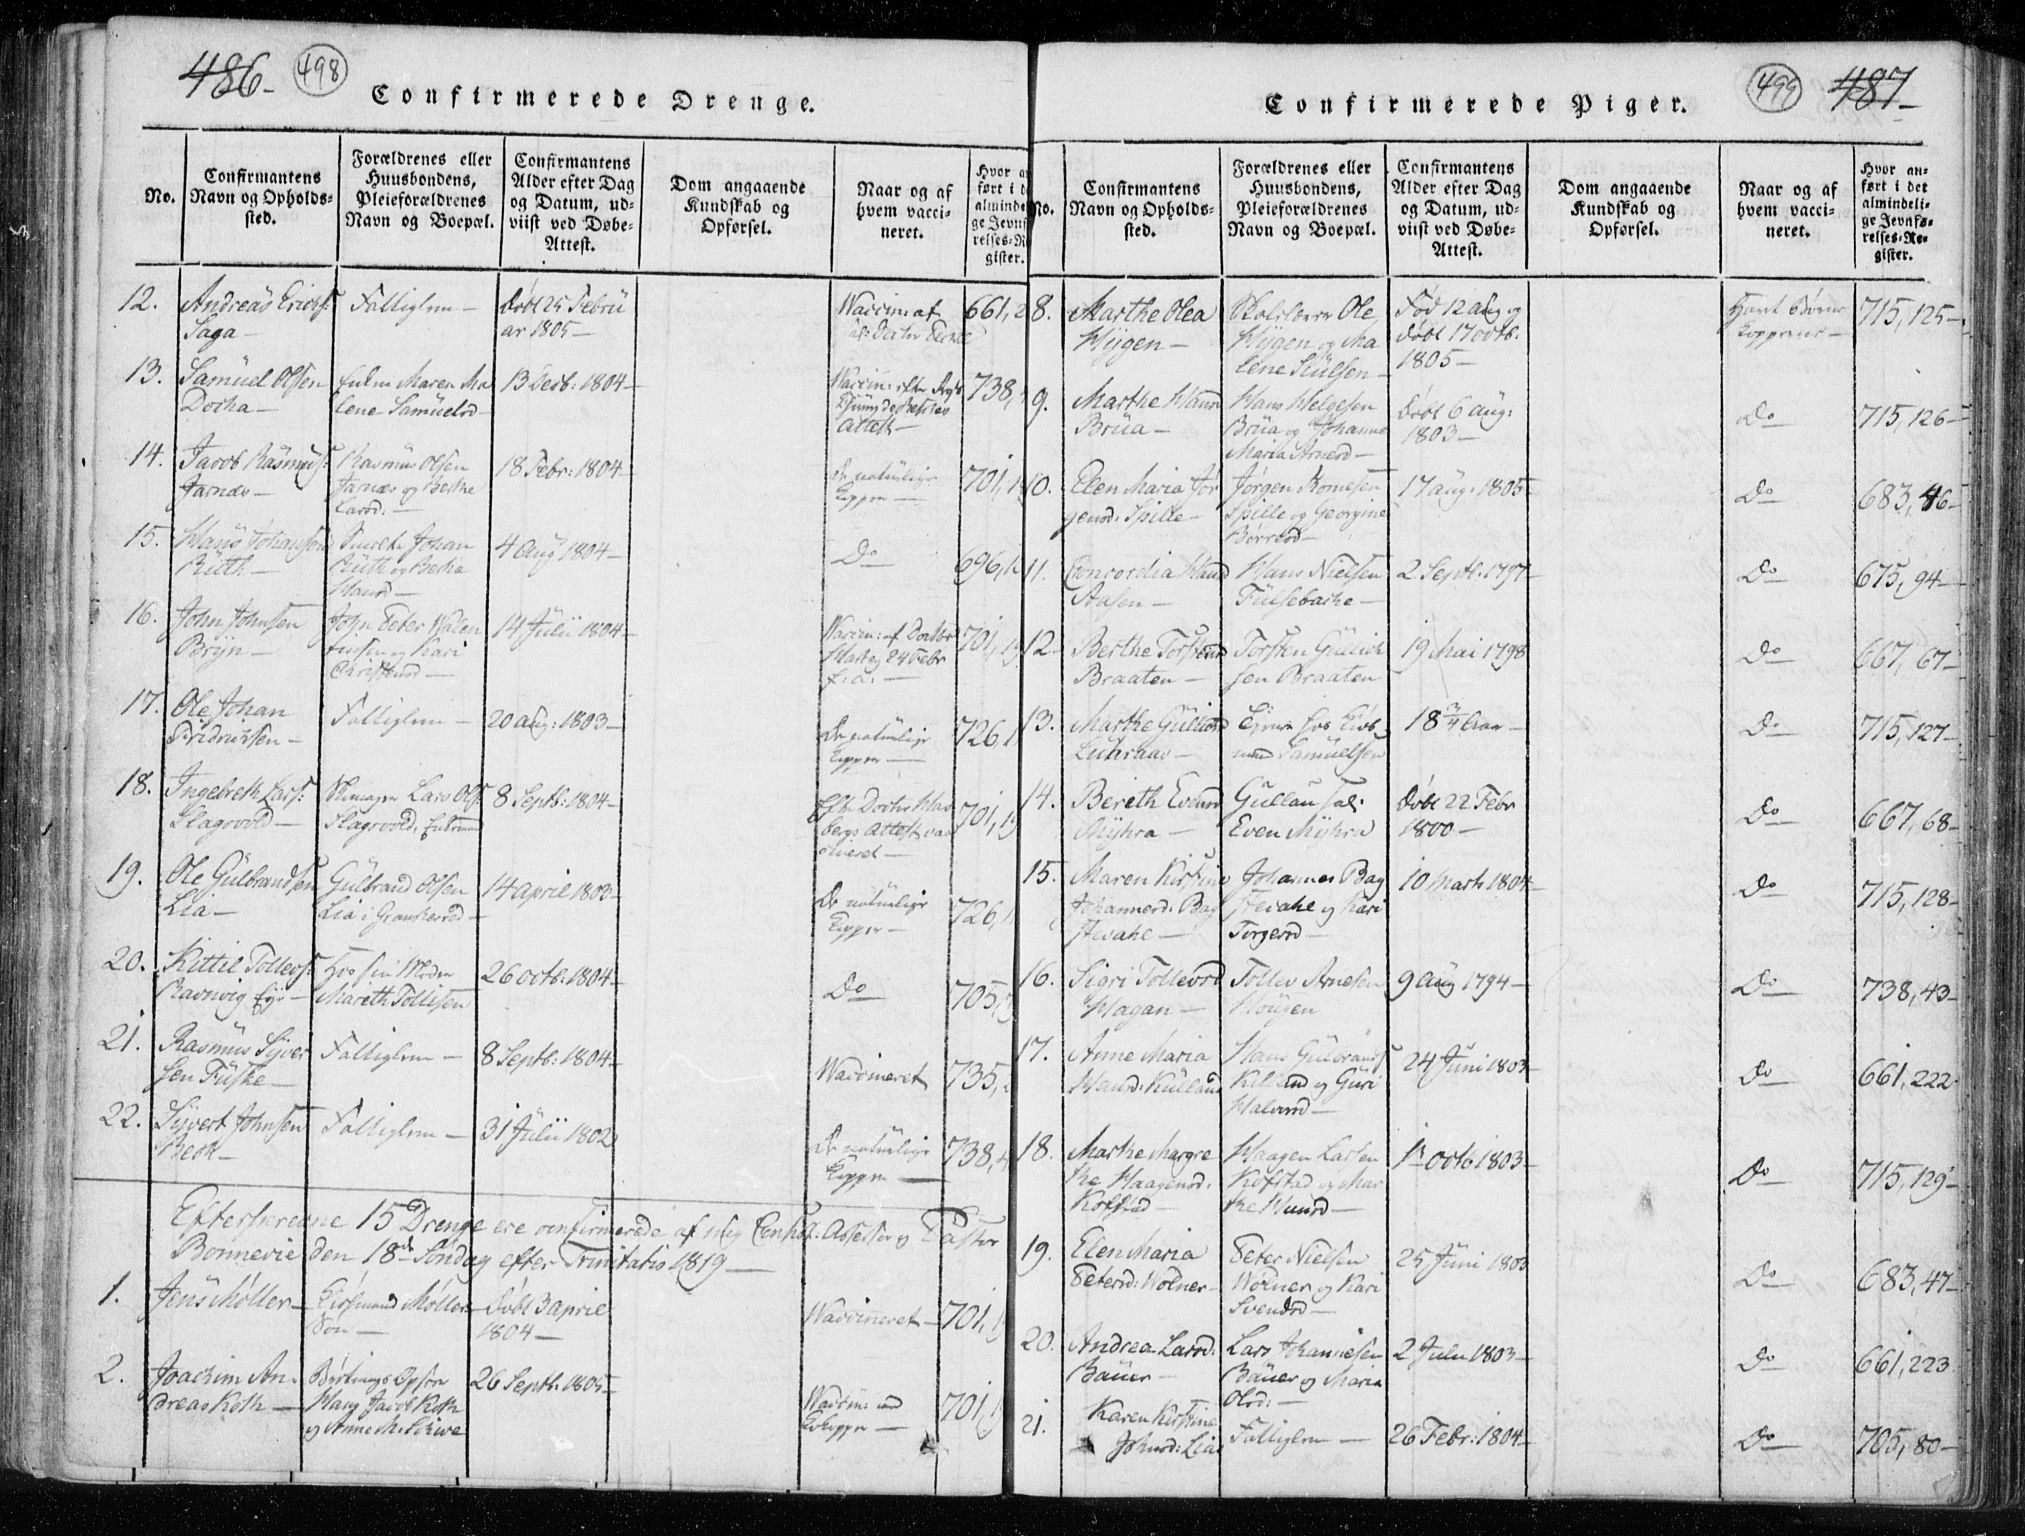 486-
498
Confirmerede Drenge.
No.
Confirmantens
Navn og Opholds-
sted.
Forældrenes eller
Huusbondens,
Pleieforældrenes
Navn og Boepæl.
Confirmantens
Alder efter Dag
og Datum, ud-
viist ved Døbe-
Attest.
Dom angaaende
Kundskab og
Opførsel.
Naar og af
hvem vacci-
neret.
12.
Andreas Erichs:
Saga-
Fattiglem-
døbt 25 Febru
ar 1805-
Vaccin: af
661,2
13.
Samuel Olsen
Docka-
Enken Maren Ma
lene Samuelsd-
13 Decb: 1804-
738,
14.
Jacob Rasmus:
Jarnæs-
Rasmus Olsen
Jarnæs og Berthe
Larsd:-
18 Febr: 1804-
De naturlige
Kopper-
701,1
15.
Hans Johansen
Ruth-
Johan
Ruth og Berthe
Hansd-
4 Aug 1804-
Do
696,1
16.
John Johnsen
Bryn-
John Peter Walen
tinsen og Kari
Christensd-
14 Julii 1804-
24 Febr
701,19
17.
Ole Johan
Fridrichsen-
Fattiglem-
20 aug: 1803-
De naturlige
Kopper-
726,1
18.
Ingebreth Lars:
Slagvold-
Lars Ols:
Slagsvold,
8 Septb: 1804-
701,19
19.
Ole Gulbrandsen
Lia-
Gulbrand Olsen
Lia i Gransherred-
14 april 1803-
De naturlige
Kopper-
726,1
20.
Kittil Tollevs:
Ravnvig Eje-
Hos sin Moder
Mareth Tollisen
26 octb: 1804-
Do
705,
21.
Rasmus Syver
sen Fuske-
Fattiglem-
8 Septb: 1804-
Vaccineret
735,
22.
Syvert Johnsen
Beck-
Fattiglem-
31 Julii 1802
De naturlige
Kopper-
738,
Efterskrevne 15 Drenge ere confirmerede af mig Consist: Assessor og Pastor
Bonnevie den 18de Søndag efter Trinitatis 1819-
1.
Jens Møller-
Kiøbmand Møllers
Søn-
døbt 3 april
1804-
Vaccineret-
701,1
2.
Joachim An-
dreas Koth-
Hans Jacob Koth
og Anne M.
26 Septb: 1805-
Vaccin: med
Kokopper-
701,1
499
487-
Confirmerede Piger.
No.
Confirmantens
Navn og Opholds-
sted.
Forældrenes eller
Huusbondens,
Pleieforældrenes
Navn og Boepæl.
Confirmantens
Alder efter Dag
og Datum, ud-
viist ved Døbe-
Attest.
Dom angaaende
Kundskab og
Opførsel.
Naar og af
hvem vacci-
neret.
Hvor an-
ført i det
almindeli-
ge Jevnfø-
relses-Re-
gister.
8.
Marthe Olea
Hygen-
Ole
Hygen og Ma
lene
Fød 12 aug og
døbt 17 octb:
1805-
Havt Børne
kopperne-
715,125-
9.
Marthe Hansd
Brua-
Hans Helgesen
Brua og Johanne
Maria Arnesd-
døbt 6 aug:
1803-
Do
715,126-
10.
Elen Maria Jør
gensd: Spille-
Jørgen Thomesen
Spille og Georgine
Børresd-
17 aug: 1805-
Do
683,46-
11.
Concordia Hansd
Aasen-
Hans Nielsen
Fulsebakke-
2 Septb: 1797-
Do
675,94-
12-
Berthe Torstensd
Braaten-
Torsten Gullich
sen Braaten
19 Mai 1798
Do
667,67-
13.
Marthe Gullichsd
Luhraas-
Tjener hos Kiøb
mand Samuelsen
18 3/4 Aar-
Do
715,127-
14.
Bereth Evensd
Myhra-
Even Myhra
døbt 22 Febr
1800-
Do
667,68-
15.
Maren Kirstine
Johannesd: Bag
stevahe-
Johannes Bag
stevahe og Kari
Torgersd-
10 Marts 1804-
Do
715,128-
16.
Sigri Tollevsd
Hagan-
Tollev Arnesen
Hougen
9 aug 1794-
Do
738,43-
17.
Anne Maria
Hansd: Kulland
Hans Gulbrands
og Guri
Halvorsd-
24 Juni 1803-
Do
661,222-
18.
Marthe Margre
the Haagensd:
Kolstad-
Haagen Larsen
Kolstad og Mar
the Hansd-
1 octb 1803-
Do
715,129-
19.
Elen Maria
Petersd: Wolner-
Peter Nielsen
Wolner og Kari
Svendsd-
25 Juni 1803
Do
683,47-
20.
Andrea Larsd:
Bauer-
Lars Johannesen
Bauer og Maria
Olsd:-
2 Julii 1803-
Do
661,223
21.
Karen Kirstine
Johnsd: Lia
Fattiglem-
26 Febr: 1804-
Do
705,80-